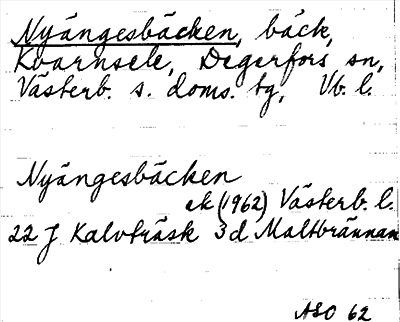 Nyängesbäcken, bäck,
Kvarnsele, Degerfors sn,
Västerb. s. doms. tg, Vb. l.
Nyängesbäcken
ek (1962) Västerb. l.
22 J Kalvträsk 3d Maltbrännan
ASO 62